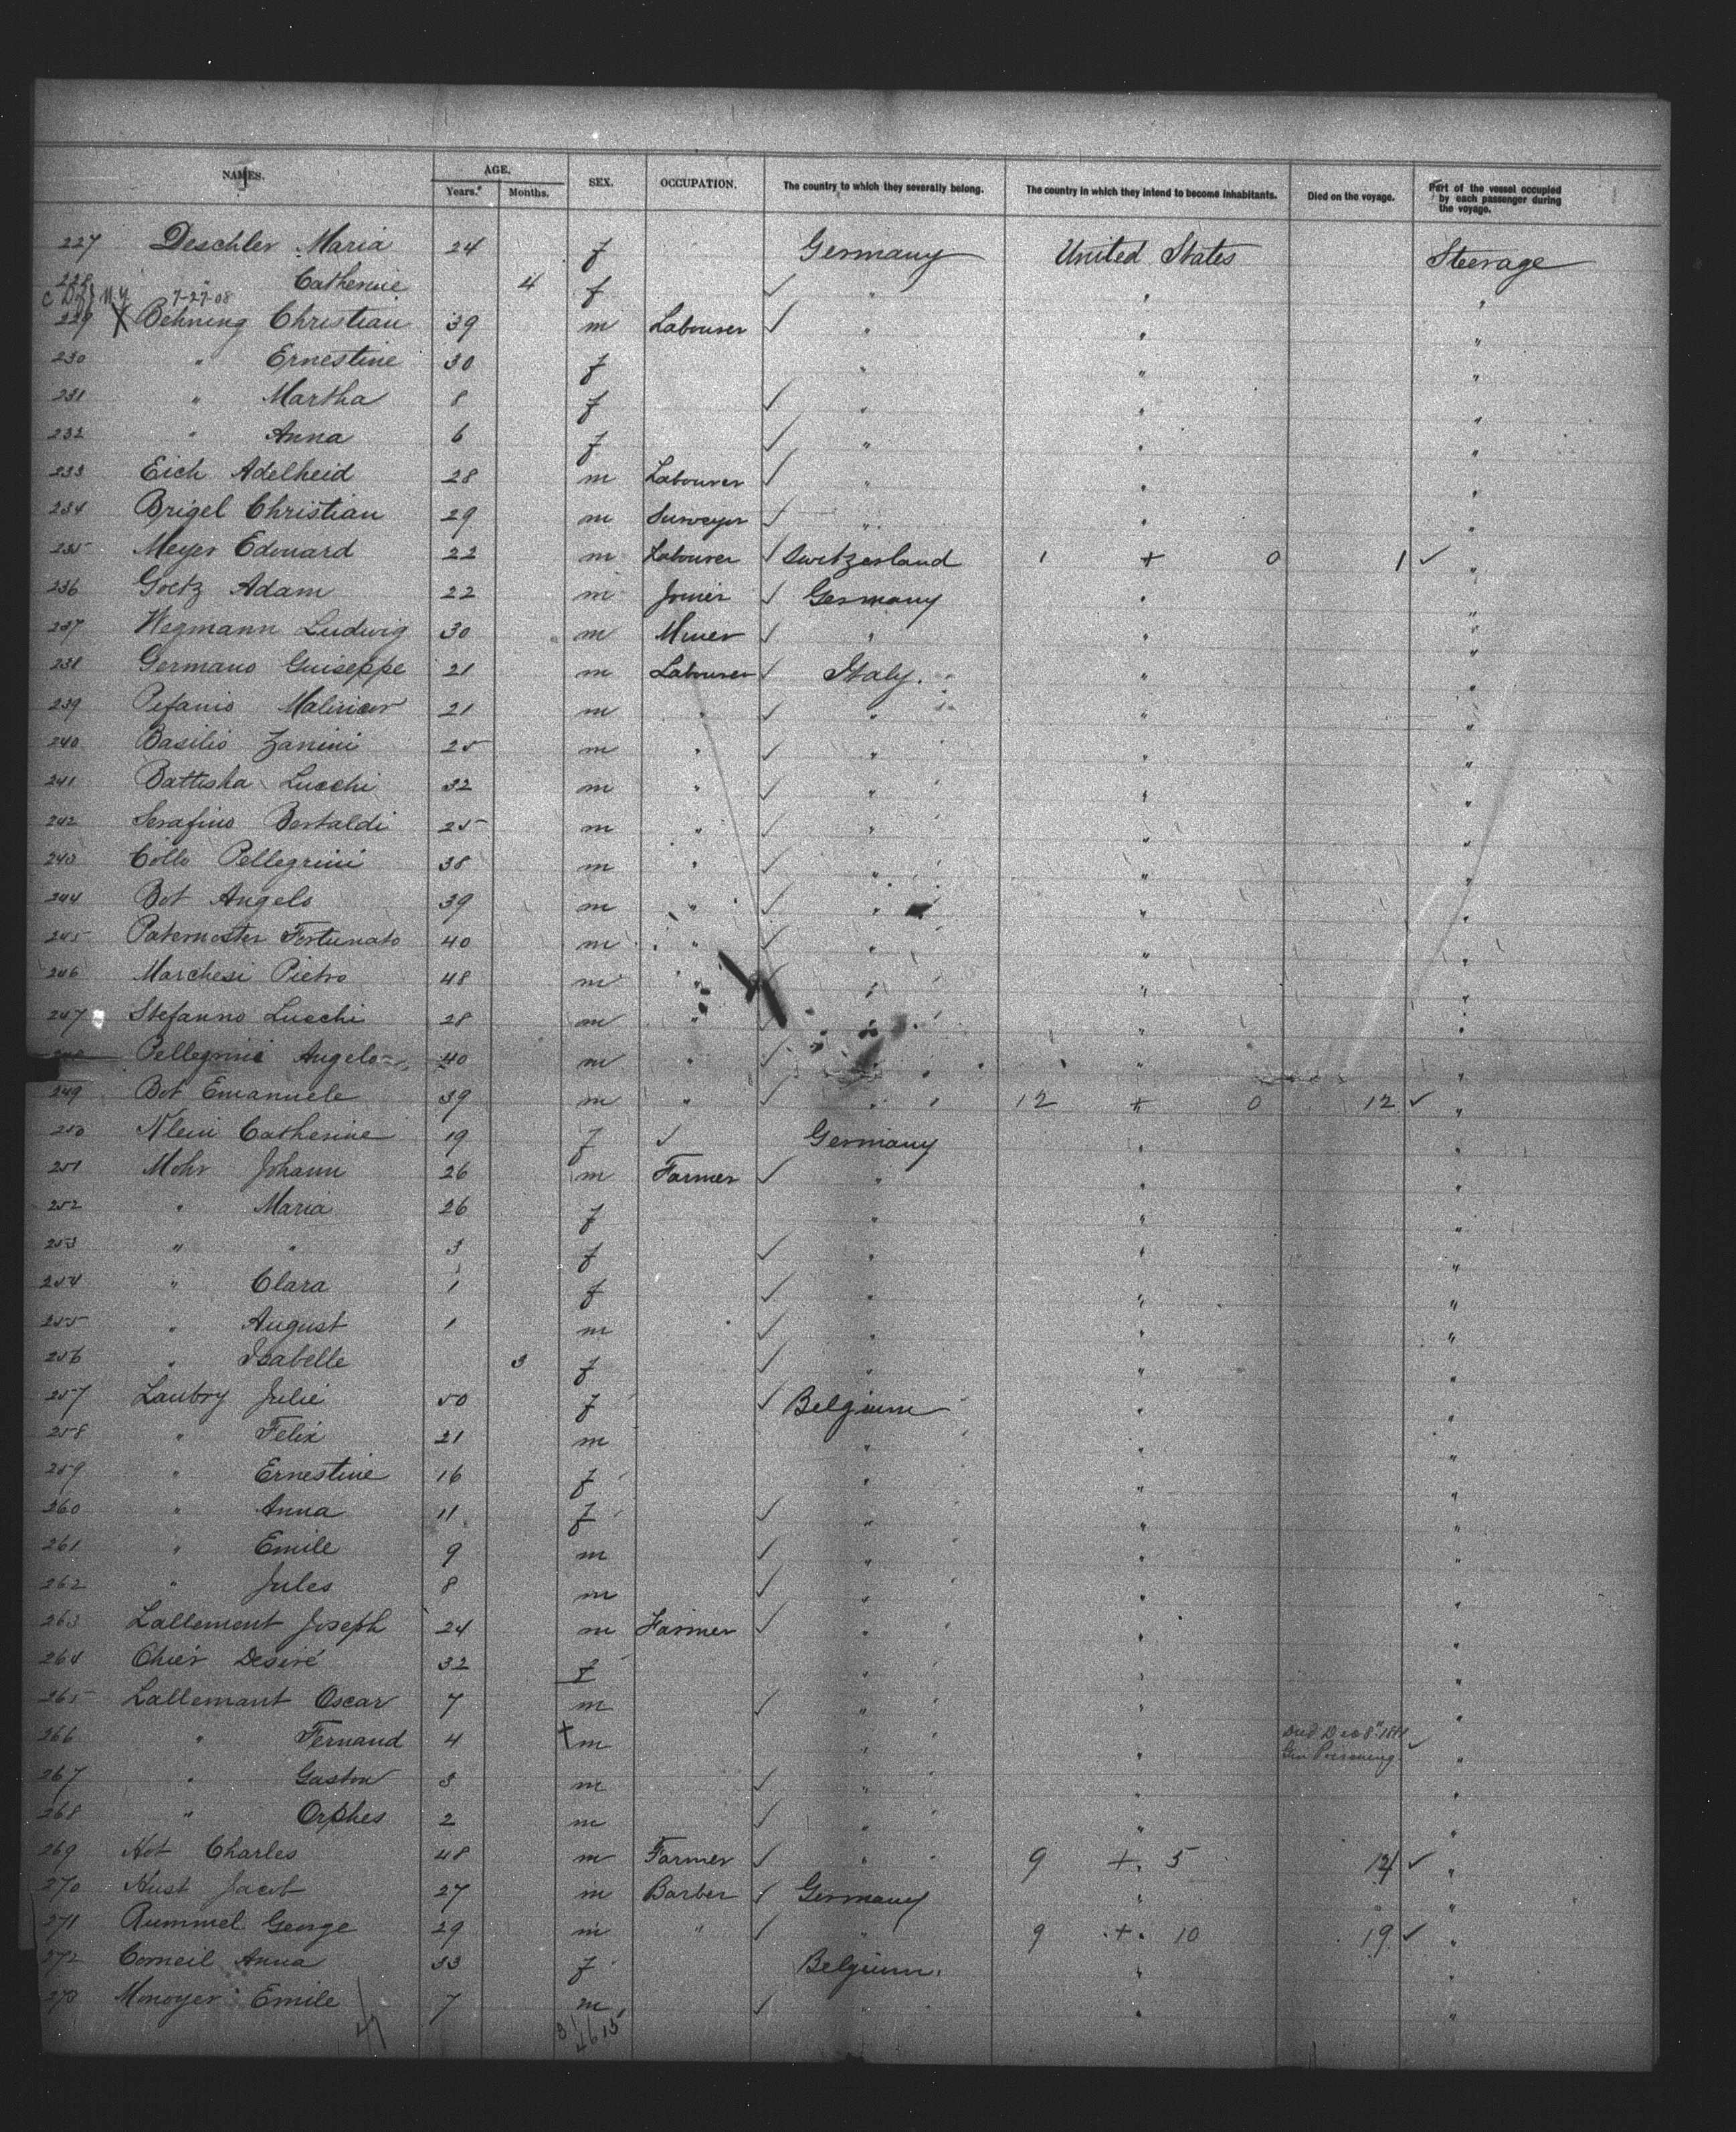 NAMES. AGE. SEX. OCCUPATION. The country to which they severally belong. The country in which they intend to become inhabitants. Died on the voyage. Part of the vessel occupied by each passenger during the voyage.
Years. Months.
227 Deschler Maria 24 f Germany United States Steerage
228 " Catherine 4 f " " "
N.Y. 7-27-08
229 X Behning Christian 39 m Labourer " " "
230 " Ernestine 30 f " " "
231 " Martha 8 f " " "
232 " Anna 6 f " " "
233 Eich Adelheid 28 m Labourer " " "
234 Brigel Christian 29 m Surveyor " " "
235 Meyer Edouard 22 m Labourer Switzerland 1 + 0 1 "
236 Goetz Adam 22 m Joiner Germany " "
237 Wegmann Ludwig 30 m Miner " " "
238 Germano Guiseppe 21 m Labourer Italy. " "
239 Pefanio 21 m " " " "
240 Basilio Zanini 25 m " " " "
241 Battisha Lucchi 32 m " " " "
242 Serafino Bertaldi 25 m " " " "
243 Collo Pellegrini 38 m " " " "
244 Bot Angelo 39 m " " " "
245 Paternoster Fortunato 40 m " " " "
246 Marchesi Pietro 48 m " " " "
247 Stefanno Lucchi 28 m " " " "
Pellegrini Angelo 40 m " " " "
249 Bot Emanuele 39 m " " 12 + 0 12 "
250 Klein Catherine 19 f Germany " "
251 Mohr Johann 26 m Farmer " " "
252 " Maria 26 f " " "
253 " " 3 f " " "
254 " Clara 1 f " " "
255 " August 1 m " " "
256 " Isabelle 3 f " " "
257 Laubry Julie 50 f Belgium " "
258 " Felix 21 m " " "
259 " Ernestine 16 f " " "
260 " Anna 11 f " " "
261 " Emile 9 m " " "
262 " Jules 8 m " " "
263 Lallement Joseph 24 m Farmer " " "
264 Chièr Desiré 32 f " " "
265 Lallemant Oscar 7 m " " "
266 " Fernand 4 + m " " Died Dec 8" "
267 " Gaston 3 m " " "
268 " Orphes 2 m " " "
269 Hot Charles 48 m Farmer " 9 + 5 14 "
270 Hust Jacob 27 m Barber Germany " "
271 Rummel George 29 m " " 9 + 10 19 "
272 Corneil Anna 33 f Belgium. " "
273 Monoyer Emile 7 m " " "
47